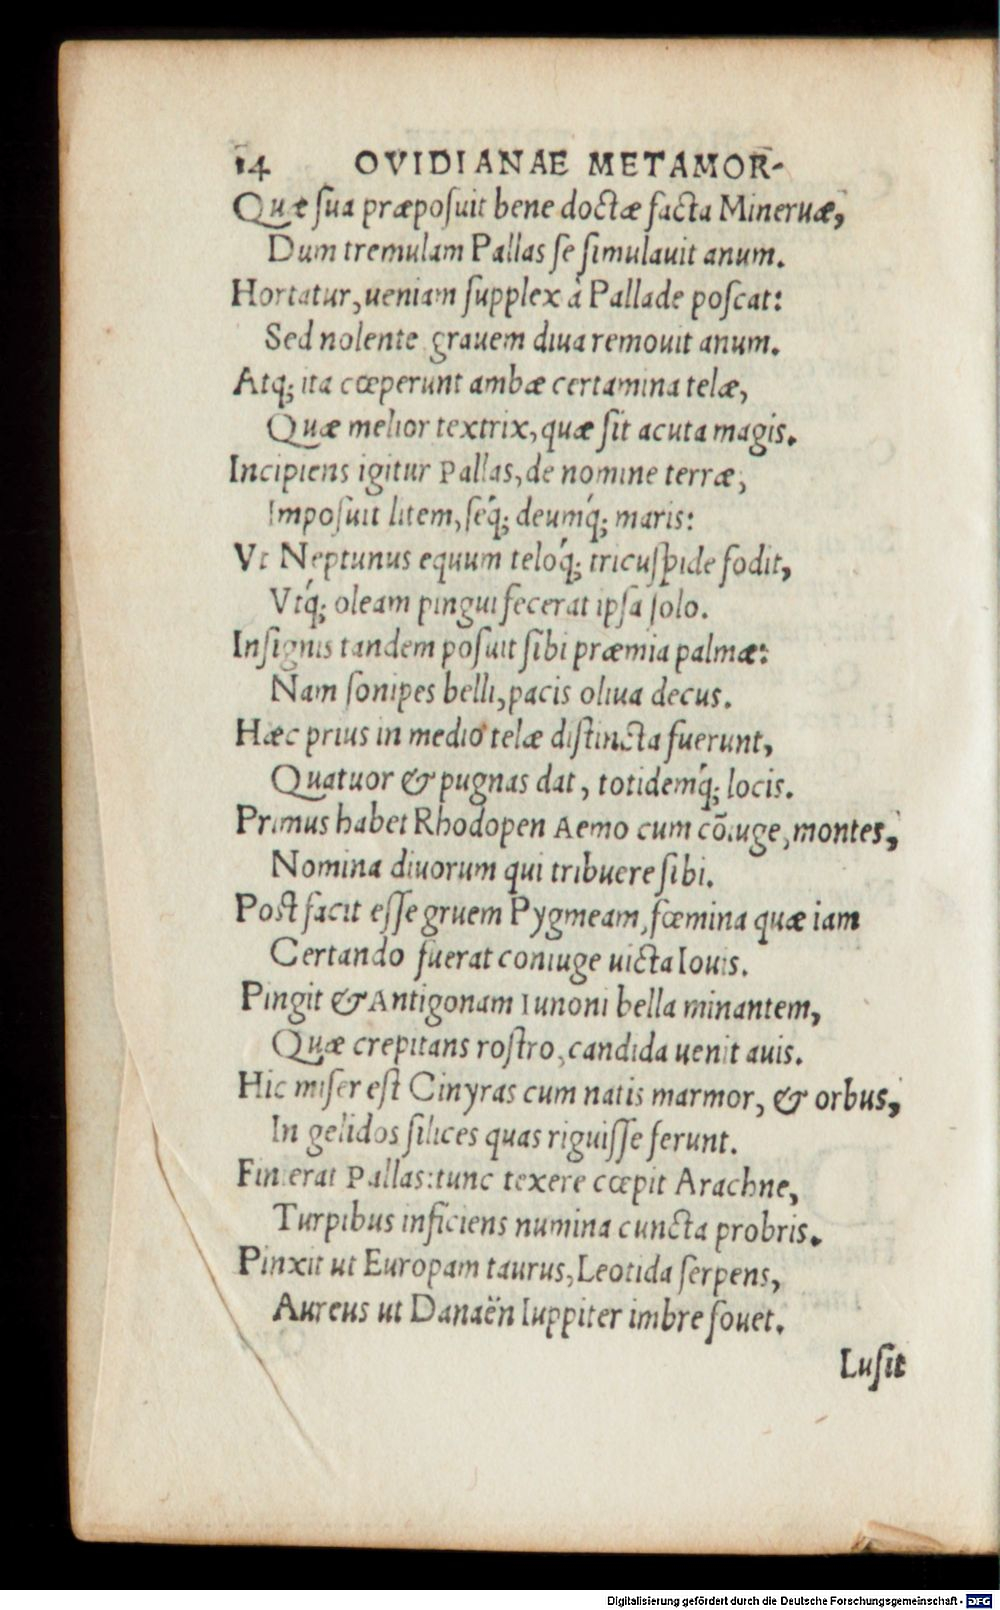 14 OVIDIANAE METAMOR-
Quæ sua præposuit bene doctæ facta Mineruæ,
Dum tremulam Pallas se simulauit anum.
Hortatur, ueniam supplex à Pallade poscat:
Sed nolente grauem diua remouit anum.
Atq; ita cœperunt ambæ certamina telæ,
Quæ melior textrix, quæ sit acuta magis.
Incipiens igitur Pallas, de nomine terræ,
Imposuit litem, seq́; deumq́; maris:
Vt Neptunus equum teloq́; tricuspide fodit,
Vtq́; oleam pingui fecerat ipsa solo.
Insignis tandem posuit sibi præmia palmæ:
Nam sonipes belli, pacis oliua decus.
Hæc prius in medio telæ distincta fuerunt,
Quatuor & pugnas dat, totidemq́; locis.
Primus habet Rhodopen Aemo cum cõiuge, montes,
Nomina diuorum qui tribuere sibi.
Post facit esse gruem Pygmeam, fœmina quæ iam
Certando fuerat coniuge uicta Iouis.
Pingit & Antigonam Iunoni bella minantem,
Quæ crepitans rostro, candida uenit auis.
Hic miser est Cinyras cum natis marmor, & orbus,
In gelidos silices quas riguisse ferunt.
Finierat Pallas: tunc texere cœpit Arachne,
Turpibus inficiens numina cuncta probris.
Pinxit ut Europam taurus, Leotida serpens,
Aureus ut Danaën Iuppiter imbre fouet.
Lusit
Digitalisierung gefördert durch die Deutsche Forschungsgemeinschaft - DFG